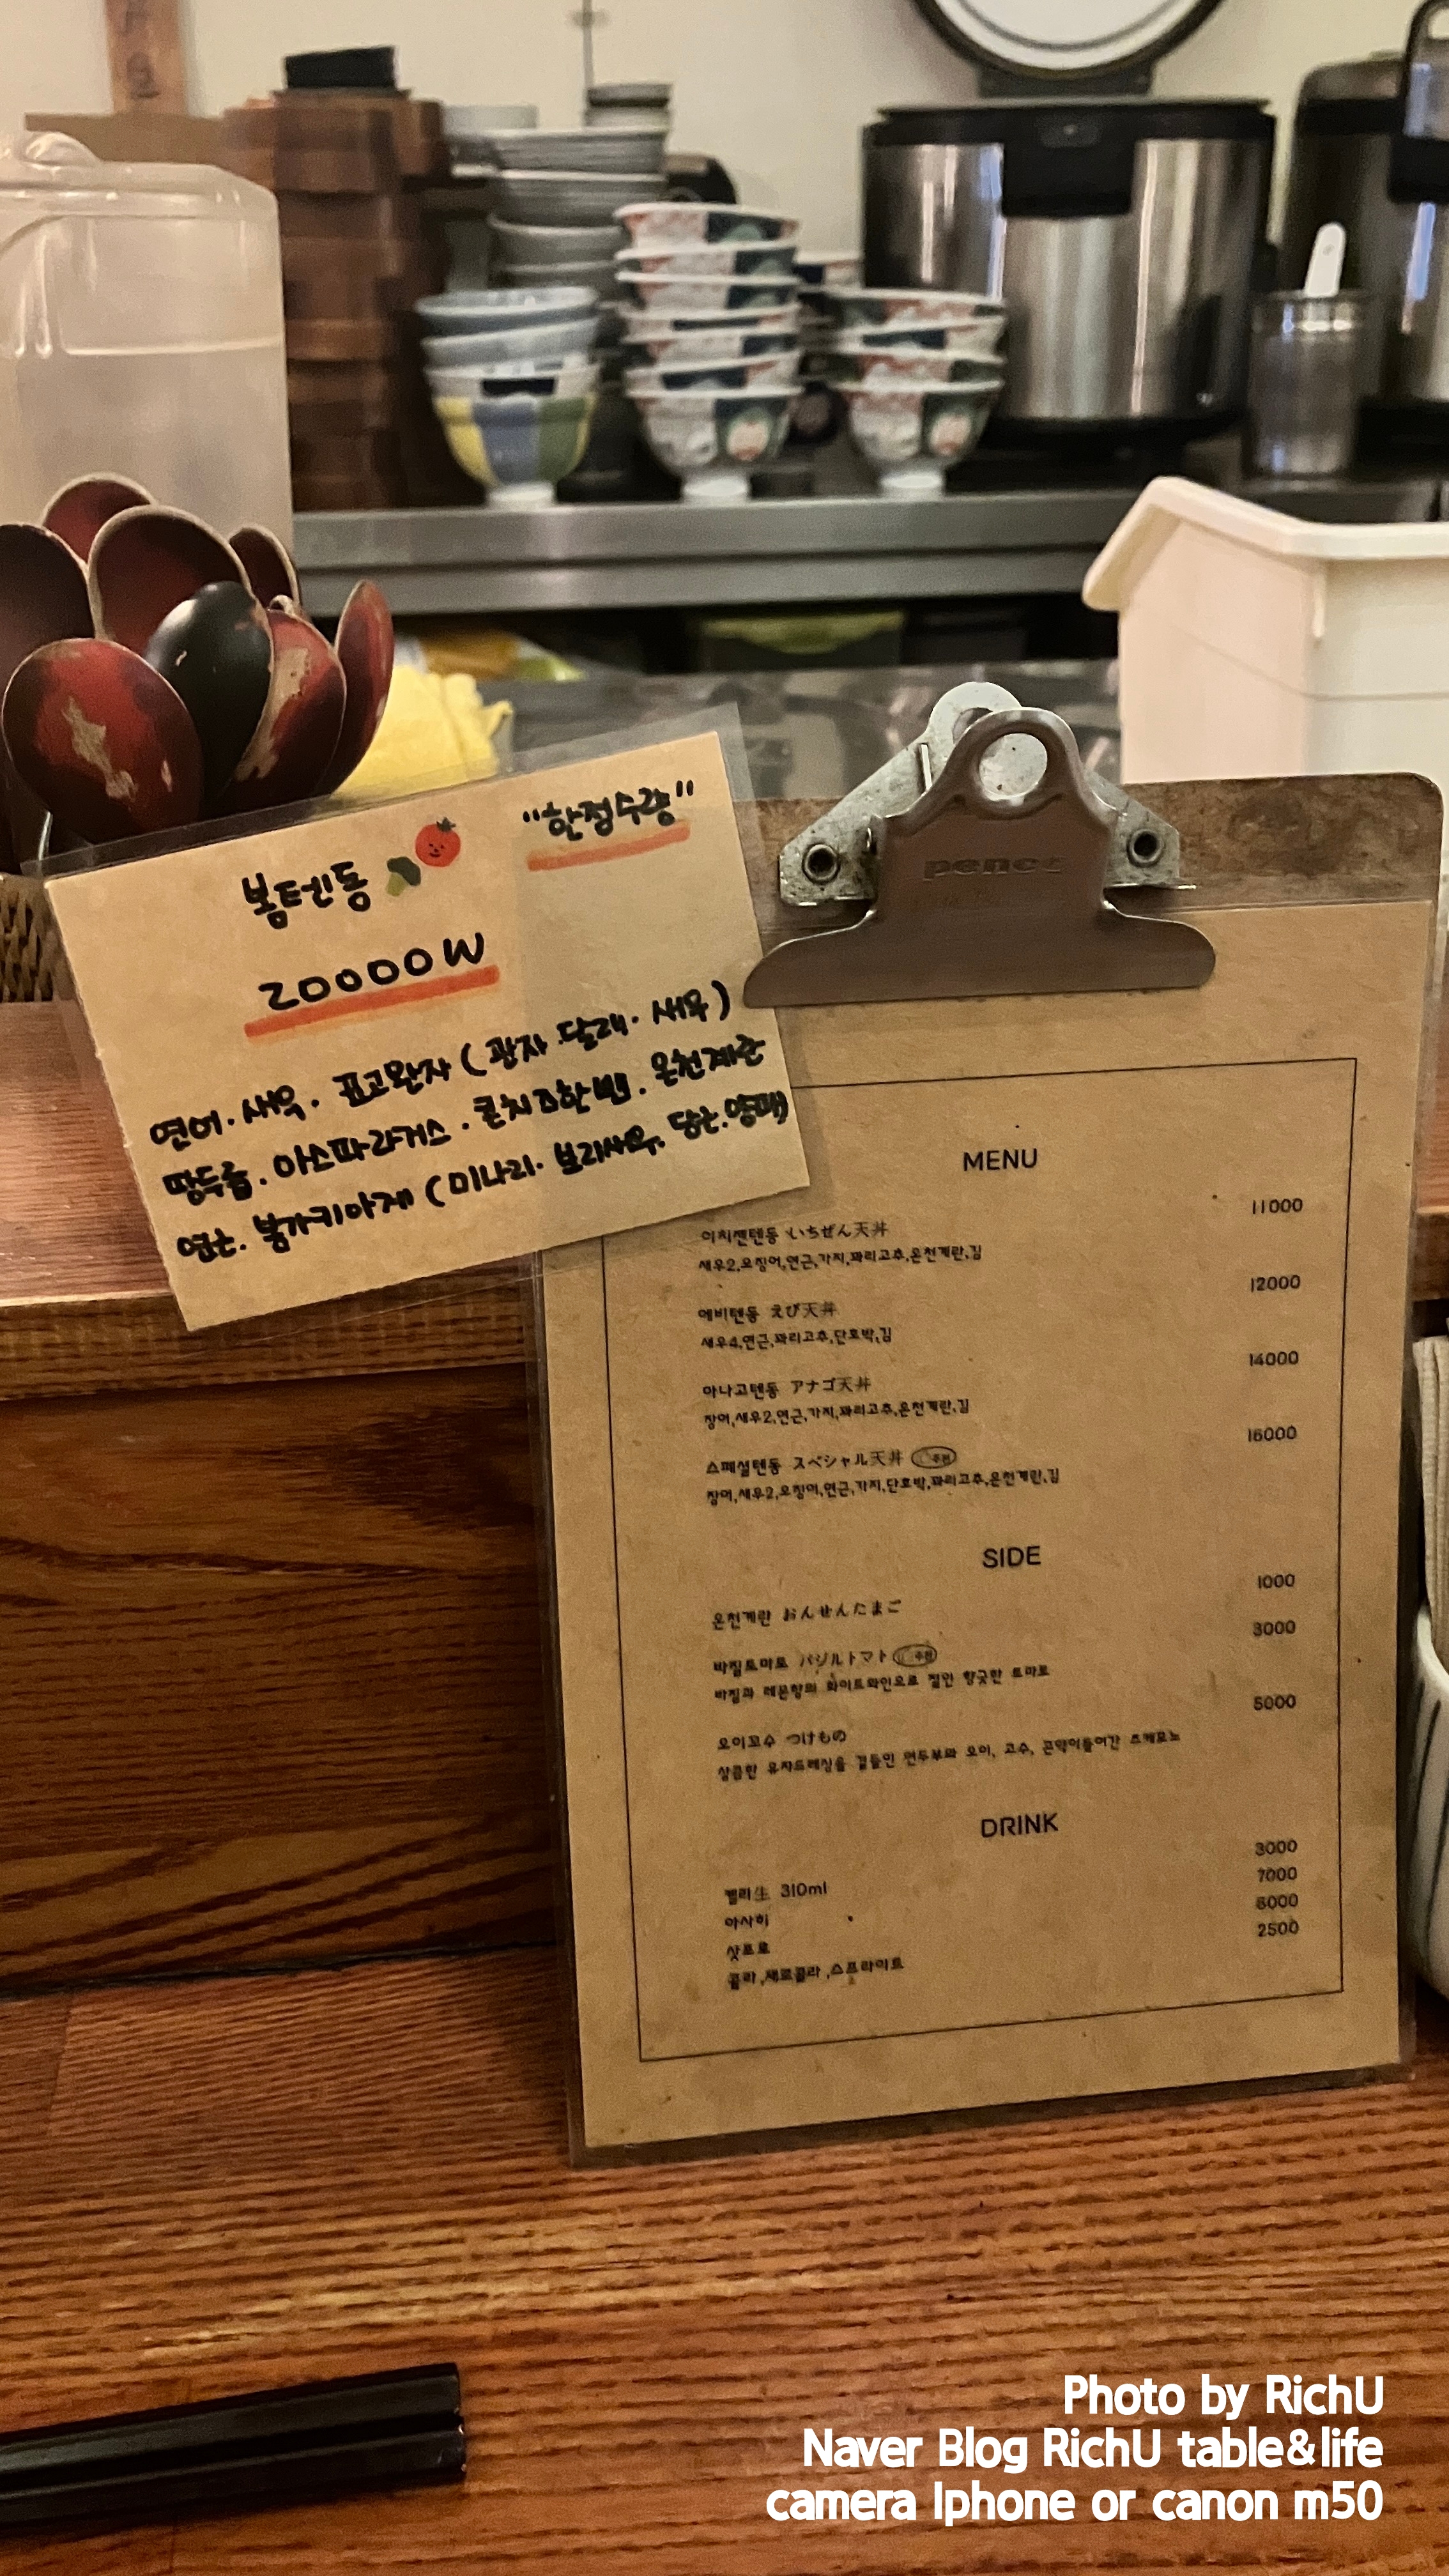 "한정수량"
봄텐동
20000W
연어. 새우. 표고완자 (관자.달래. 새우)
땅두릅. 아스파라거스. 콘치즈한뻰. 온천계란
연근. 봄가키아게 (미나리. 보리새우. 당근.양파)
penez
MENU
11000
이치젠텐동 いちぜん天丼
새우2,오징어,연근,가지,꽈리고추,온천계란,김
12000
에비텐동 えび天丼
새우4,연근,꽈리고추,단호박,김
14000
아나고텐동 アナゴ天丼
장어,새우2,연근,가지,꽈리고추,온천계란,김
16000
스페셜텐동 スペシャル天丼 추천
장어,새우2,오징어,연근,가지,단호박,꽈리고추,온천계란,김
SIDE
1000
온천계란 おんせんたまご
3000
바질토마토 バジルトマト 추천
바질과 레몬향의 화이트와인으로 절인 향긋한 토마토
5000
오이꼬수 つけもの
상큼한 유자드레싱을 곁들인 연두부와 오이, 고수, 곤약이들어간 츠케모노
DRINK
3000
켈리生 310ml
7000
아사히
6000
삿포로
2500
콜라,제로콜라,스프라이트
Photo by RichU
Naver Blog RichU table&life
camera Iphone or canon m50